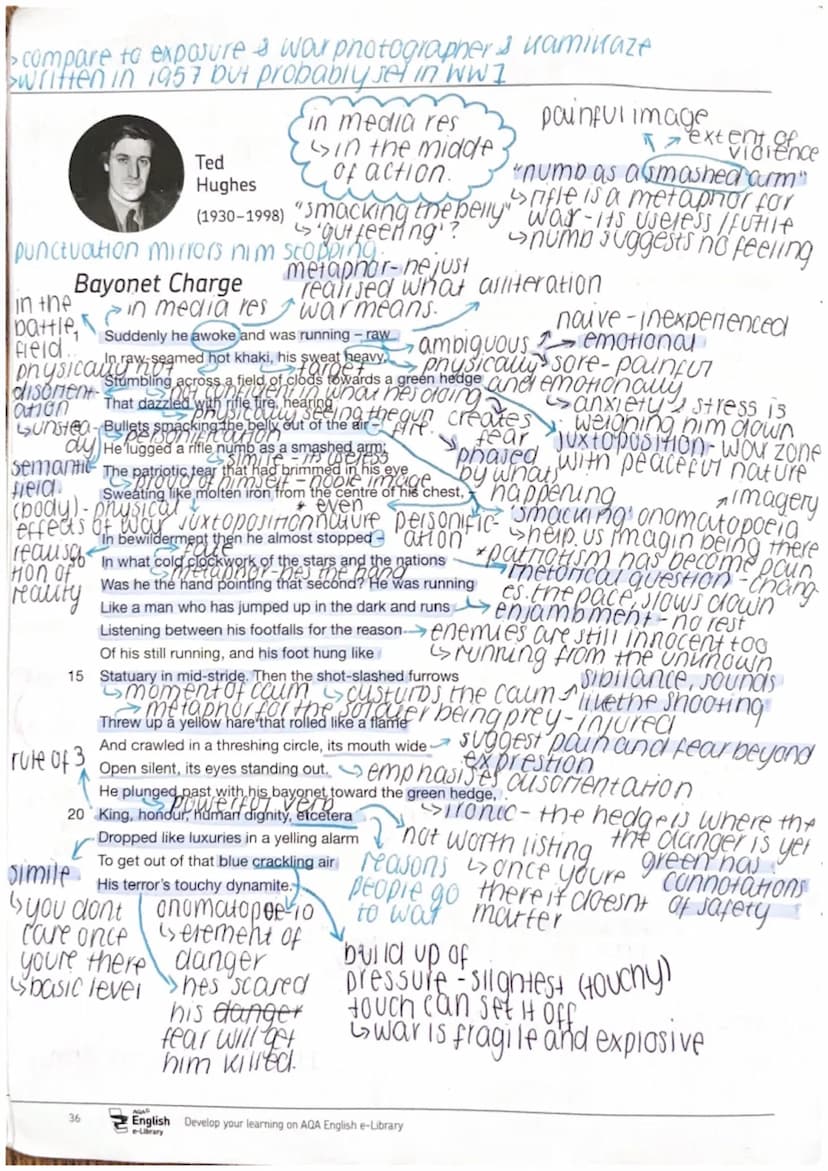 >compare to exposure & war photographer & Kamikaze
>written in 1957 but probably set in WW1
Ted
Hughes
(1930–1998)
in media res
↳ in the middle
of action.
painful image
→ extent of
violence
"numb as a smashed arm"
↳ rifle is a metaphor for
war - its useless / futile
↳ numb suggests no feeling
"smacking the belly"
↳ 'gut feeling'?
punctuation mirrors him stopping.
metaphor - he just
realised what
war means.
alliteration
Bayonet Charge
in the
battle
field.
→ in media res
naive - inexperienced
1
Suddenly he awoke and was running – raw
ambiguous → emotional
In raw-seamed hot khaki, his sweat heavy,
physically hot
target
physically sore - painful
and emotionally
Stumbling across a field of clods towards a green hedge
disorient-
ation
↳ unstea
dy
not confident in what hes doing
↳ anxiety & stress is
weighing him down
That dazzled with rifle fire, hearing
physically seeing the gun
fire.
creates
fear
Bullets smacking the belly out of the air –
personification
juxtoposition - war zone
with peaceful nature
He lugged a rifle numb as a smashed arm;
simile - its useless
phased
by whats
happening
semantic
field.
(body) - physical
effects of war
The patriotic tear that had brimmed in his eye
proud of himself - noble image
Sweating like molten iron from the centre of his chest, –
imagery
* even
nature
juxtoposition
personific-
ation
'smacking' onomatopoeia
↳ help us imagin being there
In bewilderment then he almost stopped –
fate
*patriotism has become pain
realisa
tion of
reality
10
In what cold clockwork of the stars and the nations
metaphor - hes the hand
rhetorical question - chang-
es the pace, slows down
Was he the hand pointing that second? He was running
Like a man who has jumped up in the dark and runs
enjambment - no rest
Listening between his footfalls for the reason
→ enemies are still innocent too
Of his still running, and his foot hung like
↳ running from the unknown
15
Statuary in mid-stride. Then the shot-slashed furrows
↳ moment of calm
↳ custurbs the calm
sibilance, sounds
like the shooting
→ metaphor for the soldier being prey - injured
Threw up a yellow hare that rolled like a flame
And crawled in a threshing circle, its mouth wide
→ suggest pain and fear beyond
exprestion
rule of 3
Open silent, its eyes standing out.
↳ emphasises disorientation
He plunged past with his bayonet toward the green hedge,
↳ powerful verb
↳ ironic - the hedge is where the
the danger is yet
green has
connotations
of safety
20
King, honour, human dignity, etcetera
not worth listing
↳ once youre
there it doesnt
matter
Dropped like luxuries in a yelling alarm
To get out of that blue crackling air
reasons
people go
to war
His terror's touchy dynamite.
simile
↳ you dont
care once
youre there
↳ basic level
onomatopoe-io
↳ element of
danger
hes scared
his danger
fear will get
him killed.
build up of
pressure - slightest (touchy)
touch can set it off
↳ war is fragile and explosive
36
AQA
English
e-Library
Develop your learning on AQA English e-Library